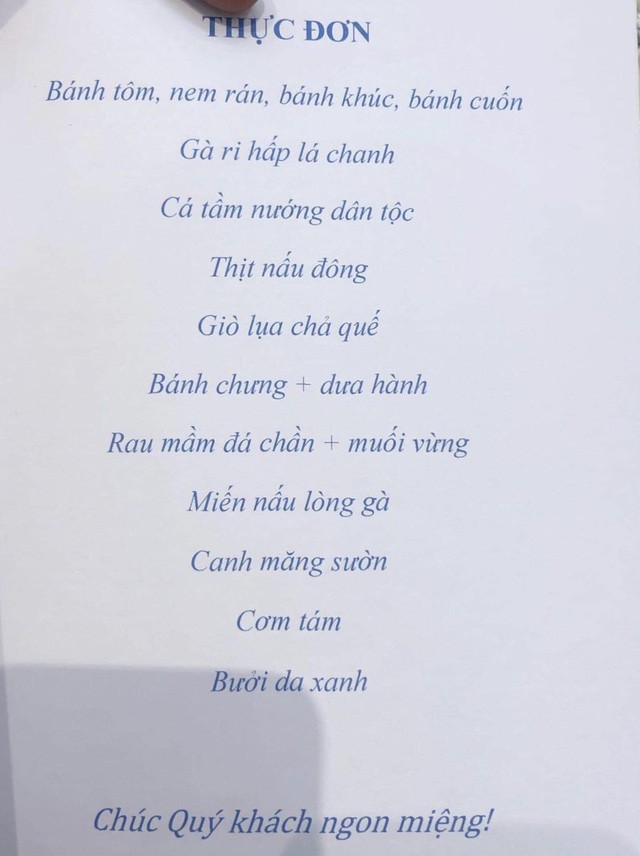 THỰC ĐƠN
Bánh tôm, nem rán, bánh khúc, bánh cuốn
Gà ri hấp lá chanh
Cá tầm nướng dân tộc
Thịt nấu đông
Giò lụa chả quế
Bánh chưng + dưa hành
Rau mầm đá chần + muối vừng
Miến nấu lòng gà
Canh măng sườn
Cơm tám
Bưởi da xanh
Chúc Quý khách ngon miệng!